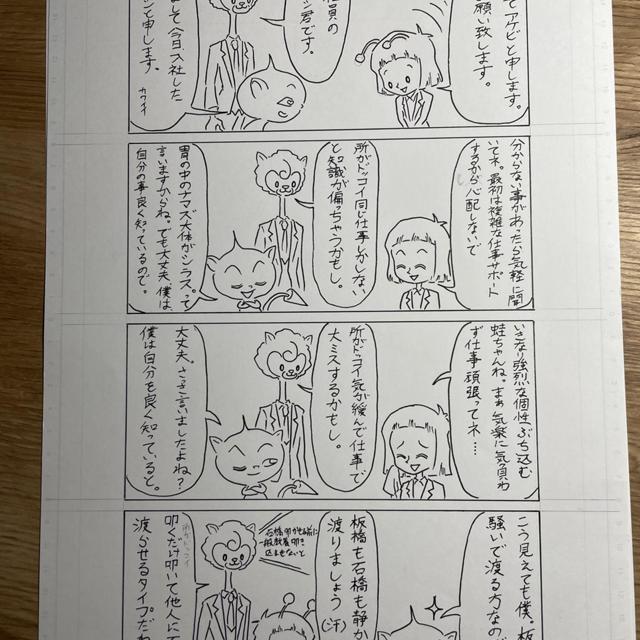 てアケビと申します。
願い致します。
員の
ン君です。
して今日入社した
と申します。
カワイイ
分からない事があったら気軽に聞
いてネ。最初は複雑な仕事サポート
するから心配しないで
所がドッコイ同じ仕事しかしない
と知識が偏っちゃうかもし。
胃の中のナマズ大体がシラス。って
言いますからね。でも大丈夫僕は、
自分の事良く知っているので。
いきなり強烈な個性ぶち込む
蛙ちゃんね。まぁ気楽に気負わ
ず仕事頑張ってネ…
所がドッコイ気が緩んで仕事で
大ミスするかもし。
大丈夫。さっき言いましたよね?
僕は自分を良く知っていると。
こう見えても僕、板
騒いで渡る方なの
板橋も石橋も静か
渡りましょう(汗)
叩くだけ叩いて他人に
渡かせるタイプだね